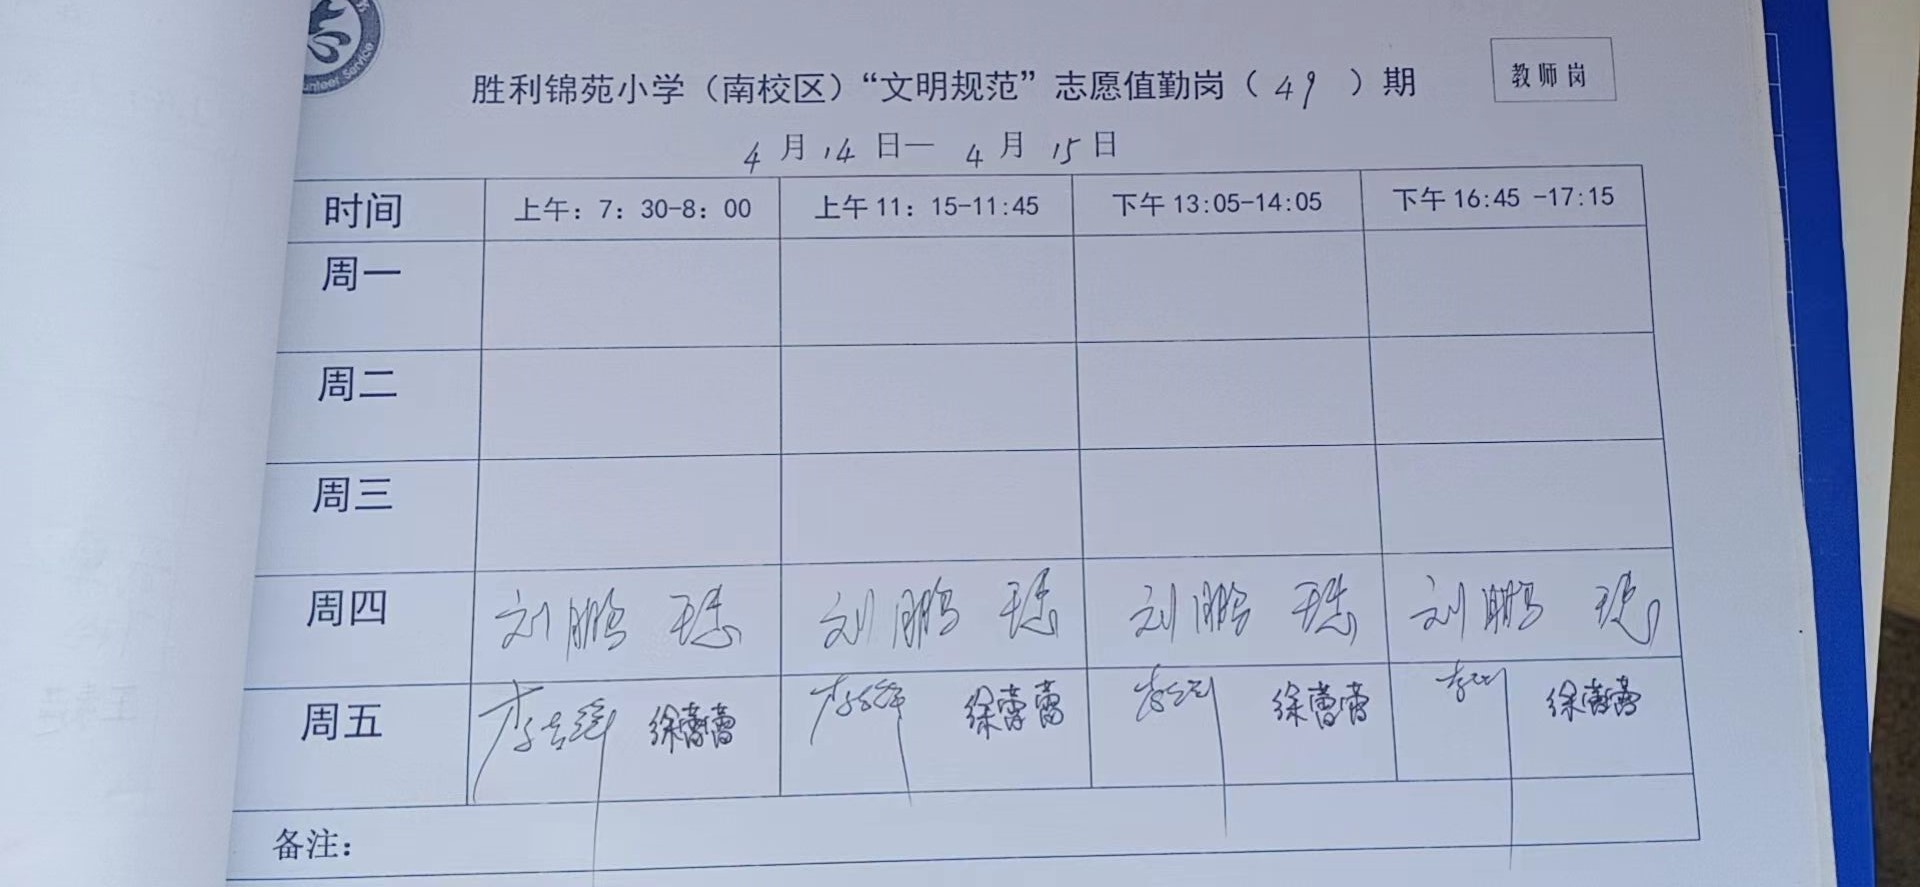 unteer Service
胜利锦苑小学（南校区）“文明规范”志愿值勤岗（49）期
教师岗
4月14日—4月15日
时间 上午：7：30-8：00 上午11：15-11:45 下午13:05-14:05 下午16:45 -17:15
周一
周二
周三
周四 刘鹏 刘鹏 刘鹏 刘鹏
周五 徐蕾蕾 徐蕾蕾 徐蕾蕾 徐蕾蕾
备注：